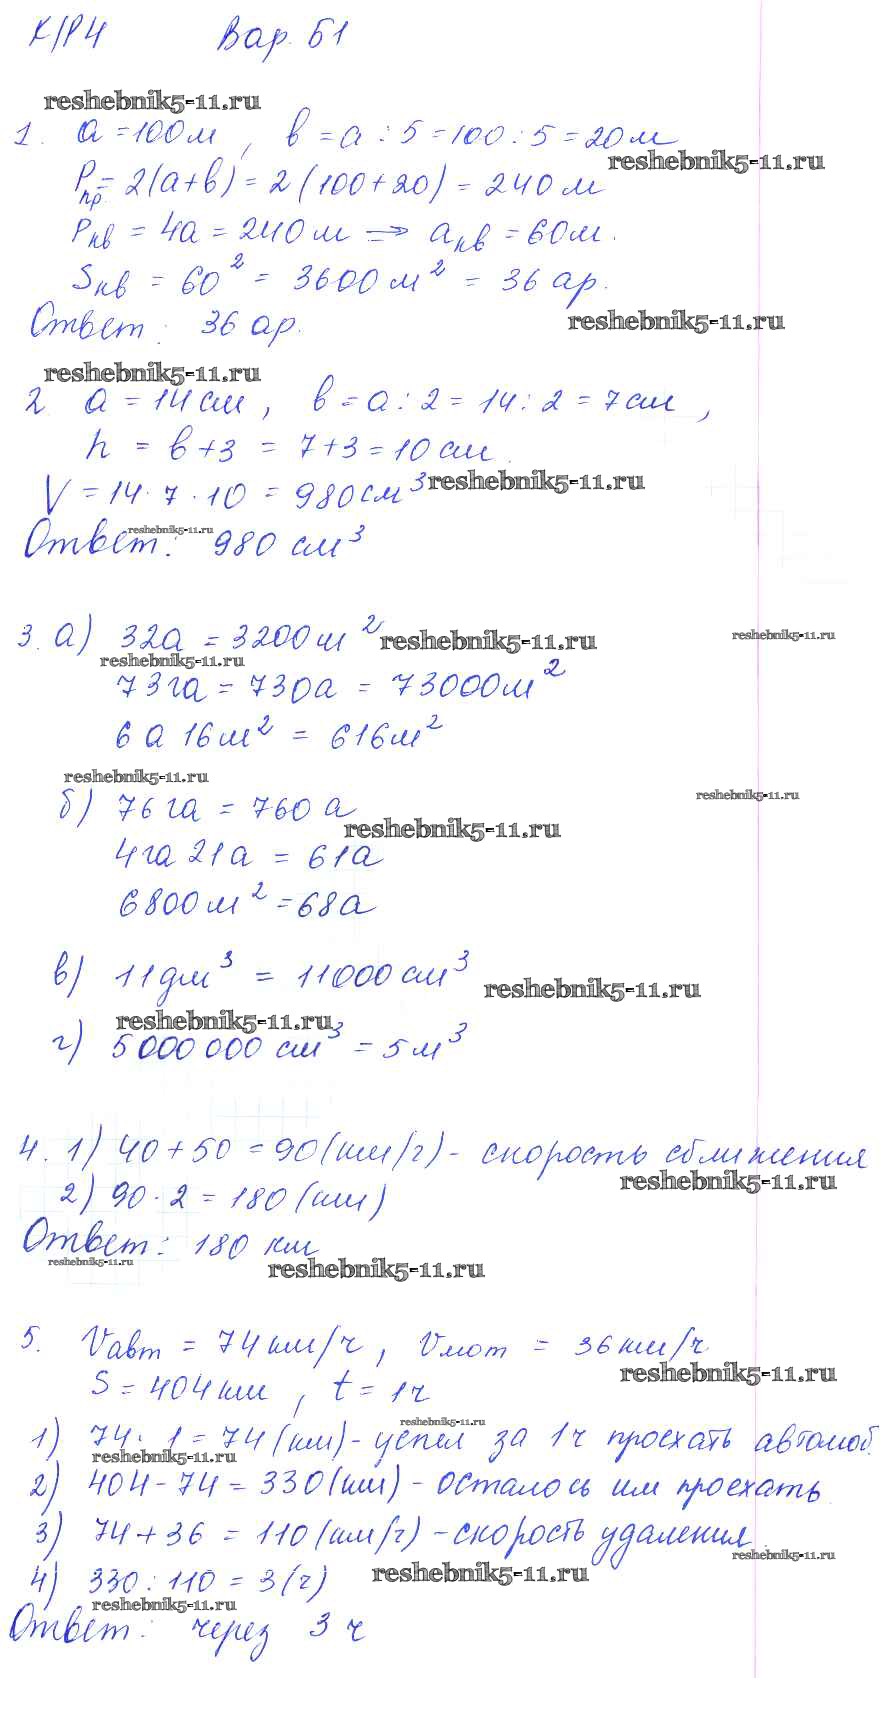 К/Р4 Вар. Б1
reshebnik5-11.ru
1. a = 100 м, b = a : 5 = 100 : 5 = 20 м
reshebnik5-11.ru
Pпр. = 2(a+b) = 2(100+20) = 240 м
Pкв = 4a = 240 м => aкв = 60 м.
Sкв = 60² = 3600 м² = 36 ар.
Ответ: 36 ар.
reshebnik5-11.ru
reshebnik5-11.ru
2. a = 14 см, b = a : 2 = 14 : 2 = 7 см,
h = b + 3 = 7 + 3 = 10 см.
V = 14 · 7 · 10 = 980 см³
reshebnik5-11.ru
reshebnik5-11.ru
Ответ: 980 см³
3. а) 32а = 3200 м²
reshebnik5-11.ru
reshebnik5-11.ru
reshebnik5-11.ru
73га = 730а = 73000 м²
6 а 16 м² = 616 м²
reshebnik5-11.ru
б) 76 га = 760 а
reshebnik5-11.ru
reshebnik5-11.ru
4га 21а = 61а
6800 м² = 68а
в) 11 дм³ = 11000 см³
reshebnik5-11.ru
reshebnik5-11.ru
г) 5 000 000 см³ = 5 м³
4. 1) 40 + 50 = 90 (км/ч) - скорость сближения
reshebnik5-11.ru
2) 90 · 2 = 180 (км)
Ответ: 180 км
reshebnik5-11.ru
reshebnik5-11.ru
5. Vавт = 74 км/ч, Vмот = 36 км/ч
reshebnik5-11.ru
S = 404 км, t = 1ч
reshebnik5-11.ru
1) 74 · 1 = 74 (км) - успел за 1ч проехать автомоб.
reshebnik5-11.ru
2) 404 - 74 = 330 (км) - осталось им проехать
3) 74 + 36 = 110 (км/ч) - скорость удаления.
reshebnik5-11.ru
4) 330 : 110 = 3 (ч)
reshebnik5-11.ru
reshebnik5-11.ru
Ответ: через 3 ч